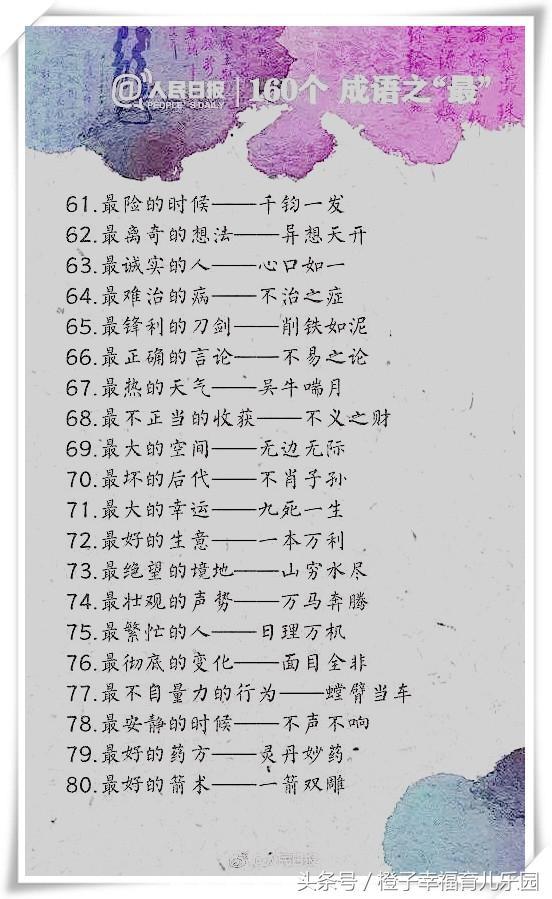 @人民日报 PEOPLE'S DAILY | 160个 成语之“最”
61.最险的时候——千钧一发
62.最离奇的想法——异想天开
63.最诚实的人——心口如一
64.最难治的病——不治之症
65.最锋利的刀剑——削铁如泥
66.最正确的言论——不易之论
67.最热的天气——吴牛喘月
68.最不正当的收获——不义之财
69.最大的空间——无边无际
70.最坏的后代——不肖子孙
71.最大的幸运——九死一生
72.最好的生意——一本万利
73.最绝望的境地——山穷水尽
74.最壮观的声势——万马奔腾
75.最繁忙的人——日理万机
76.最彻底的变化——面目全非
77.最不自量力的行为——螳臂当车
78.最安静的时候——不声不响
79.最好的药方——灵丹妙药
80.最好的箭术——一箭双雕
@人民日报
头条号 / 橙子幸福育儿乐园